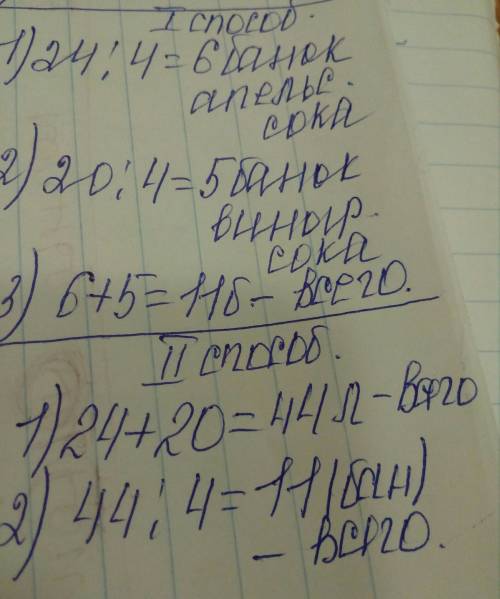 I способ.
1) 24 : 4 = 6 банок
апельс.
сока
2) 20 : 4 = 5 банок
виногр.
сока
3) 6 + 5 = 11б - всего.
II способ.
1) 24 + 20 = 44 л - всего
2) 44 : 4 = 11 (бан)
- всего.